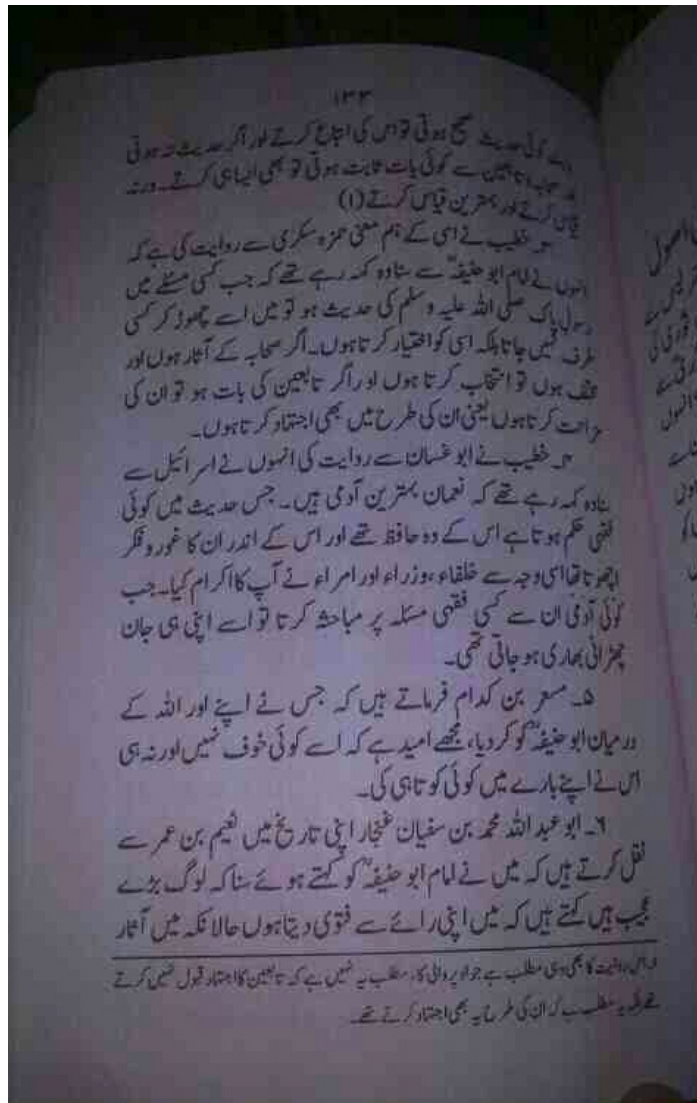 ۱۳۳
کوئی حدیث صحیح ہوتی تو اس کی اتباع کرتے اور اگر حدیث نہ ہوتی
صحابہ و تابعین سے کوئی بات ثابت ہوتی تو بھی ایسا ہی کرتے۔ ورنہ
قیاس کرتے اور بہترین قیاس کرتے (۱)
خطیب نے اسی کے ہم معنی حمزہ سکری سے روایت کی ہے کہ
انہوں نے امام ابو حنیفہؒ سے سنا وہ کہہ رہے تھے کہ جب کسی مسئلے میں
رسول پاک صلی اللہ علیہ وسلم کی حدیث ہو تو میں اسے چھوڑ کر کسی
طرف نہیں جاتا بلکہ اسی کو اختیار کرتا ہوں۔ اگر صحابہ کے آثار ہوں اور
مختلف ہوں تو انتخاب کرتا ہوں اور اگر تابعین کی بات ہو تو ان کی
مزاحمت کرتا ہوں یعنی ان کی طرح میں بھی اجتہاد کرتا ہوں۔
۴۔ خطیب نے ابو غسان سے روایت کی انہوں نے اسرائیل سے
سنا وہ کہہ رہے تھے کہ نعمان بہترین آدمی ہیں۔ جس حدیث میں کوئی
فقہی حکم ہوتا ہے اس کے وہ حافظ تھے اور اس کے اندر ان کا غور و فکر
اچھوتا تھا اسی وجہ سے خلفاء، وزراء اور امراء نے آپ کا اکرام کیا۔ جب
کوئی آدمی ان سے کسی فقہی مسئلہ پر مباحثہ کرتا تو اسے اپنی ہی جان
چھڑانی بھاری ہو جاتی تھی۔
۵۔ مسعر بن کدام فرماتے ہیں کہ جس نے اپنے اور اللہ کے
درمیان ابو حنیفہؒ کو کر دیا، مجھے امید ہے کہ اسے کوئی خوف نہیں اور نہ ہی
اس نے اپنے بارے میں کوئی کوتاہی کی۔
۶۔ ابو عبد اللہ محمد بن سفیان غنجار اپنی تاریخ میں نعیم بن عمر سے
نقل کرتے ہیں کہ میں نے امام ابو حنیفہؒ کو کہتے ہوئے سنا کہ لوگ بڑے
عجیب ہیں کہتے ہیں کہ میں اپنی رائے سے فتوی دیتا ہوں حالانکہ میں آثار
اس روایت کا بھی وہی مطلب ہے جو اوپر والی کا، مطلب یہ نہیں ہے کہ تابعین کا اجتہاد قبول نہیں کرتے
تھے بلکہ یہ مطلب ہے کہ ان کی طرح یہ بھی اجتہاد کرتے تھے۔